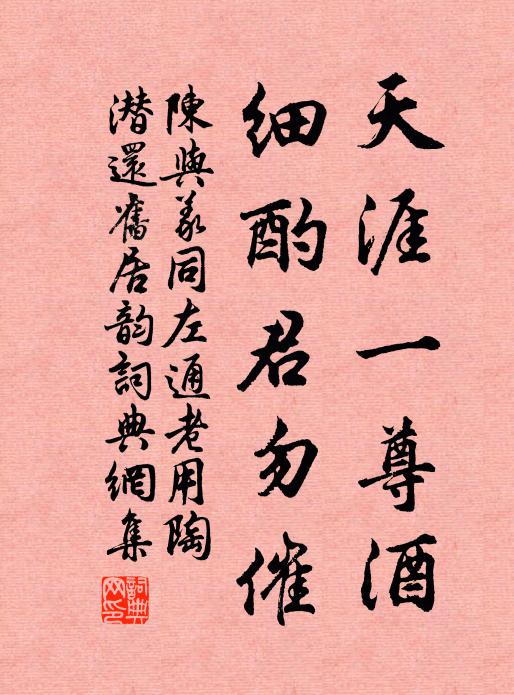 天涯一尊酒
細酌君勿催
陳與義同左通老用陶
潜還舊居韵詞典網集
詞典網印